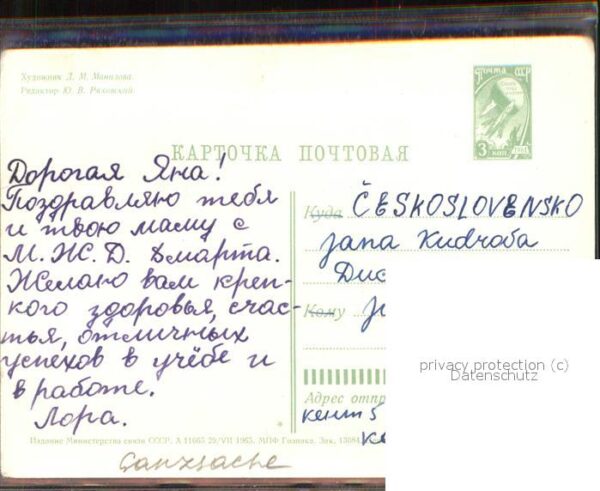 Художник Л. М. Манилова.
Редактор Ю. В. Ряховский.
Почта СССР
3 коп. 1961
КАРТОЧКА ПОЧТОВАЯ
Дорогая Яна!
Поздравляю тебя
и твою маму с
М. Ж. Д. 8 марта.
Желаю вам креп-
кого здоровья, счас-
тья, отличных
успехов в учёбе и
в работе.
Лора.
Куда ČESKOSLOVENSKO
Jana Kudroba
Кому
privacy protection (c)
Datenschutz
Адрес отпр
Издание Министерства связи СССР. А 11665 29/VII 1965. МПФ Гознака. Зак. 13084.
Ganzsache